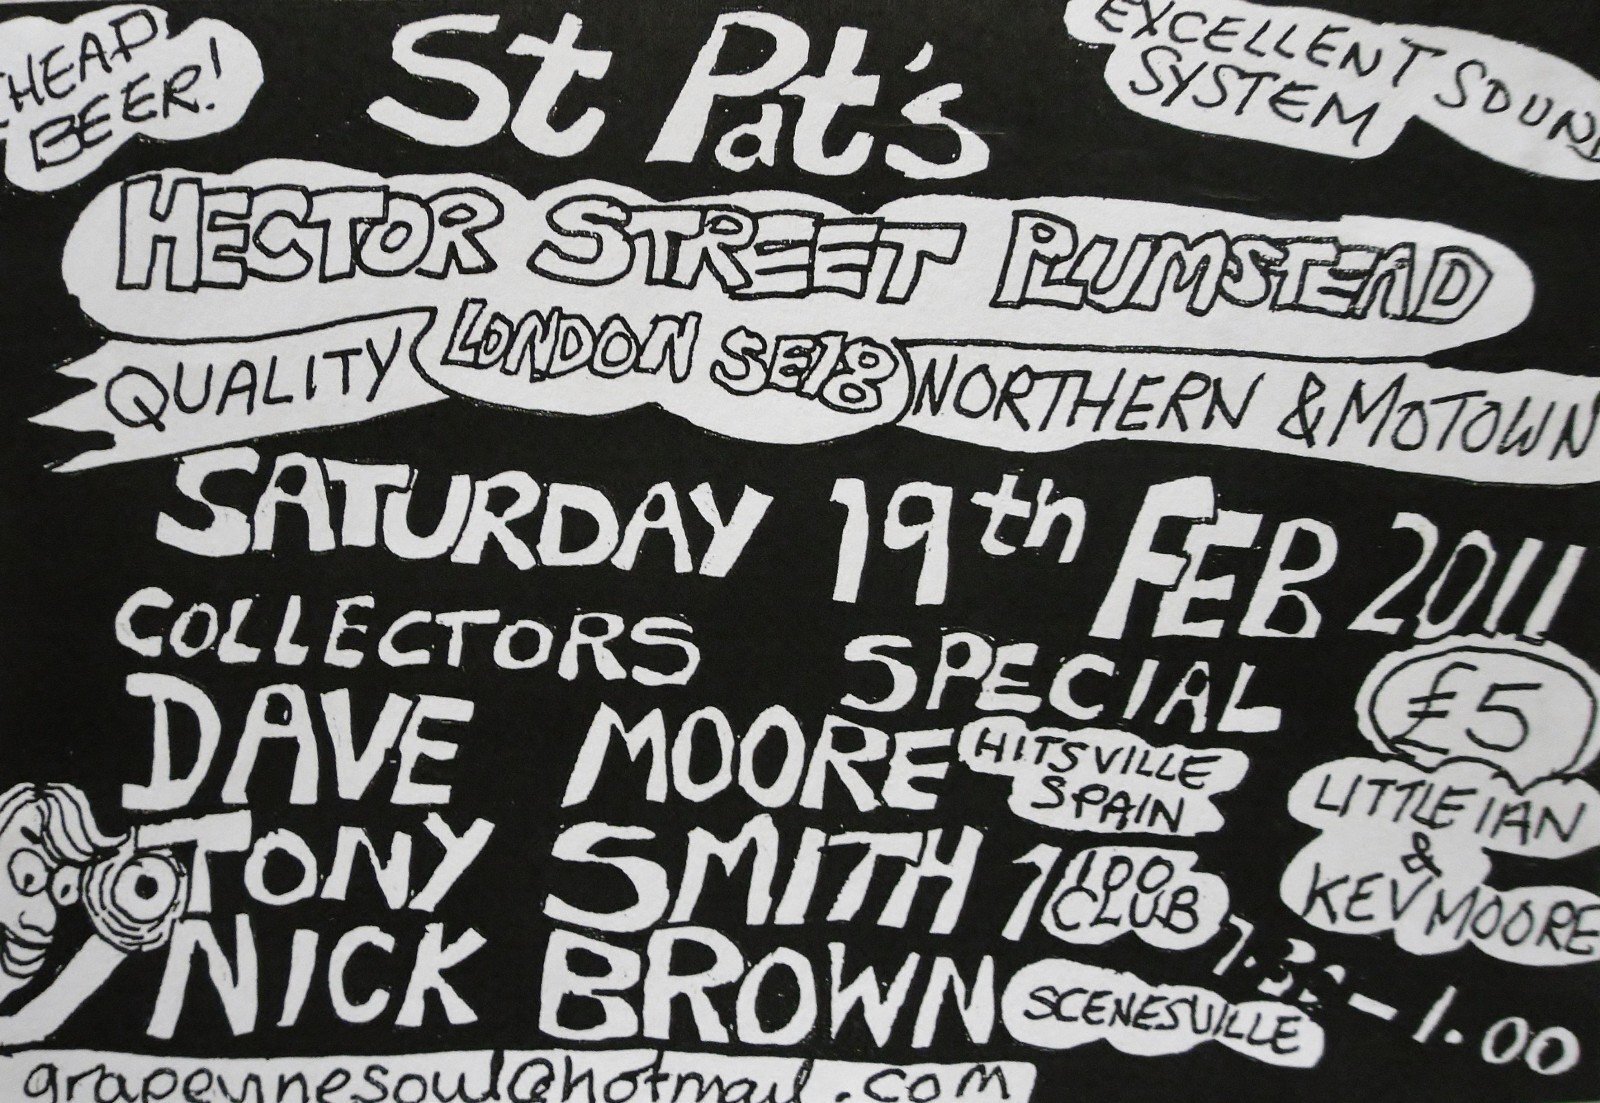 CHEAP
BEER!
St Pat's
EXCELLENT SOUND
SYSTEM
HECTOR STREET PLUMSTEAD
LONDON SE18
QUALITY NORTHERN & MOTOWN
SATURDAY 19th FEB 2011
COLLECTORS SPECIAL
£5
DAVE MOORE HITSVILLE
SPAIN
LITTLE IAN
&
KEV MOORE
TONY SMITH 100
CLUB
7.30 - 1.00
NICK BROWN SCENESVILLE
grapevinesoul@hotmail.com